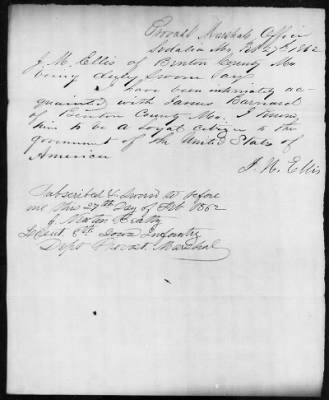 Provost Marshals Office
Sedalia Mo, Feb 27th 1862
J. M. Ellis of Benton County Mo
being duly sworn says
I have been intimately ac-
quainted with James Barnard
of Benton County Mo. I know
him to be a loyal citizen to the
government of the United States of
America
J. M. Ellis
Subscribed & Sworn to before
me this 27th day of Feb 1862
J. Morton
Lieut 8th Iowa Infantry
Dept Provost Marshal